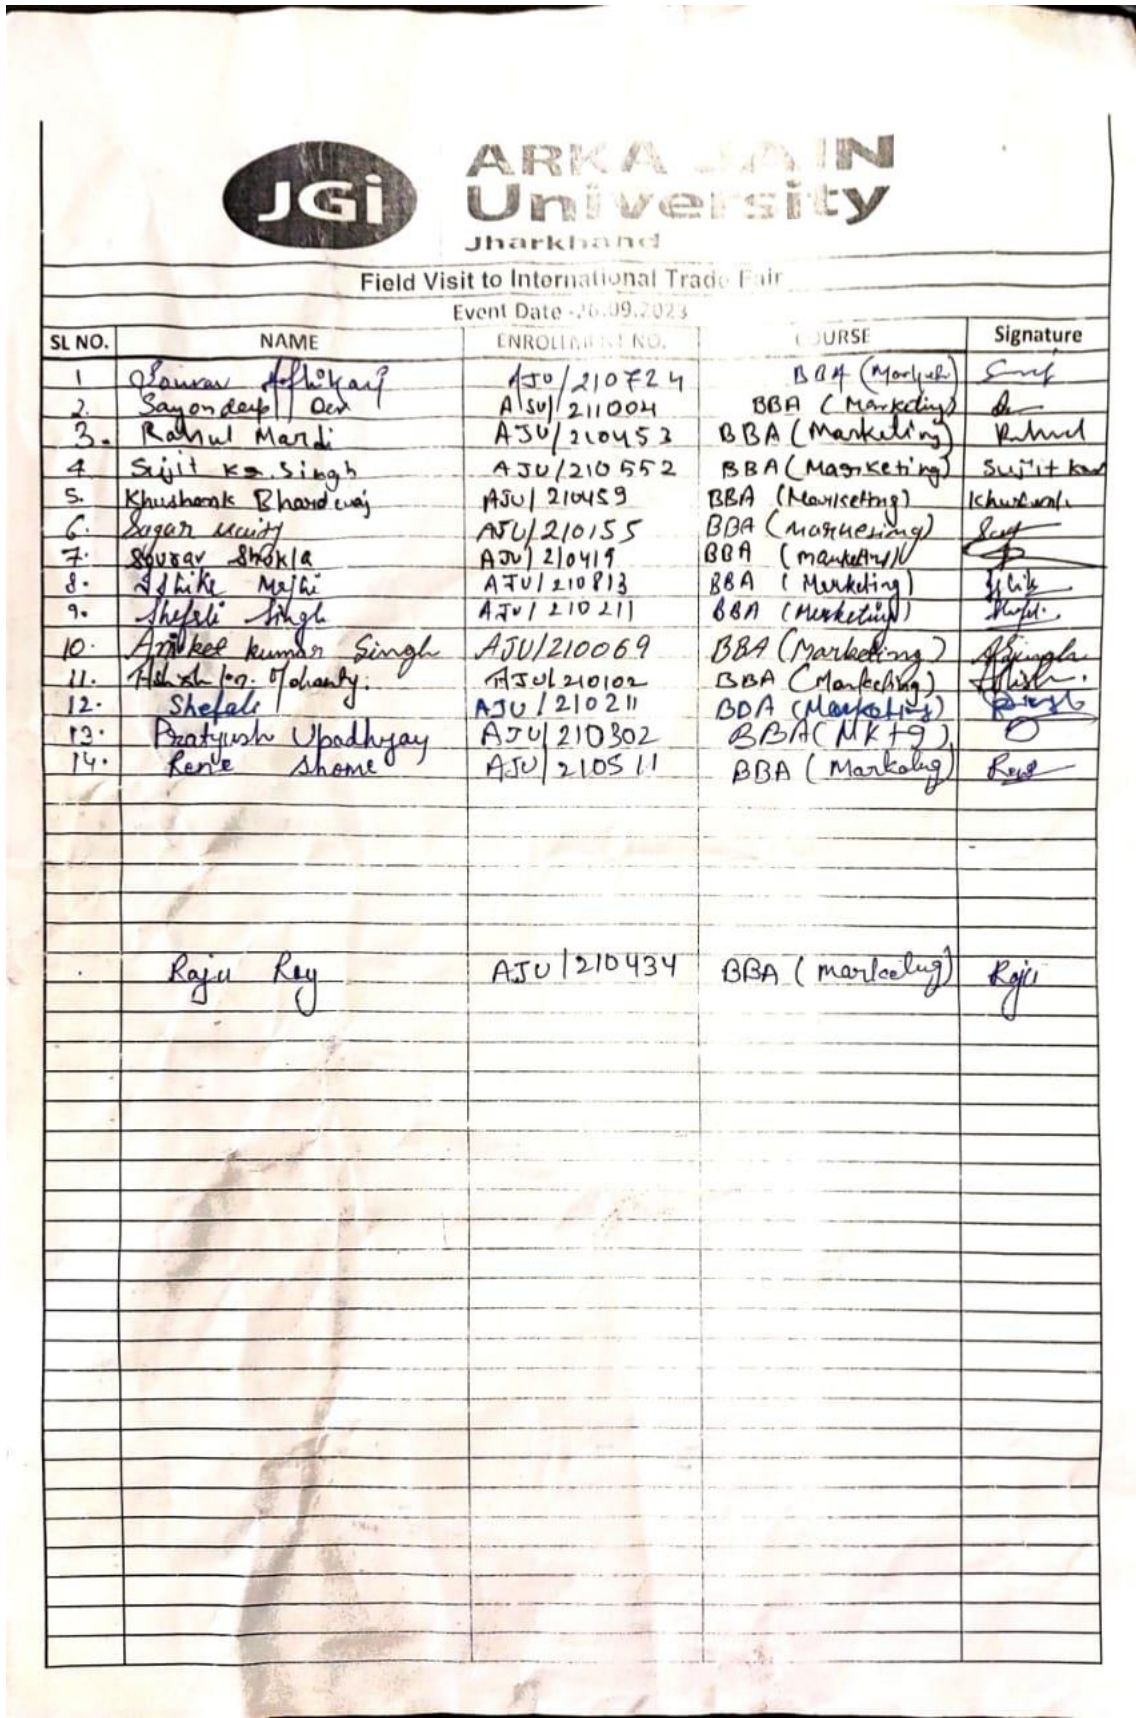 JGi
ARKA JAIN
University
Jharkhand
Field Visit to International Trade Fair
Event Date -26.09.2023
SL NO. NAME ENROLLMENT NO. COURSE Signature
1 Sourav Adhikari AJU/210724 BBA (Market)
2. Sayondeep Dey AJU/211004 BBA (Marketing)
3. Rahul Mardi AJU/210453 BBA (Marketing) Rahul
4 Sujit Kr. Singh AJU/210552 BBA (Marketing) Sujit
5. Khushank Bhardwaj AJU/210459 BBA (Marketing)
6. Sagar Maity AJU/210155 BBA (Marketing)
7. Sourav Shokla AJU/210419 BBA (marketing)
8. Ishike Majhi AJU/210813 BBA (Marketing)
9. Shefali Singh AJU/210211 BBA (Marketing)
10. Aniket kumar Singh AJU/210069 BBA (Marketing) ASingh
11. Ashish Kr. Mohanty. AJU/210102 BBA (Marketing) Ashish.
12. Shefali AJU/210211 BBA (Marketing)
13. Pratyush Upadhyay AJU/210302 BBA (Mktg)
14. Rene Shome AJU/210511 BBA (Marketing)
Raju Roy AJU/210434 BBA (marketing) Raju